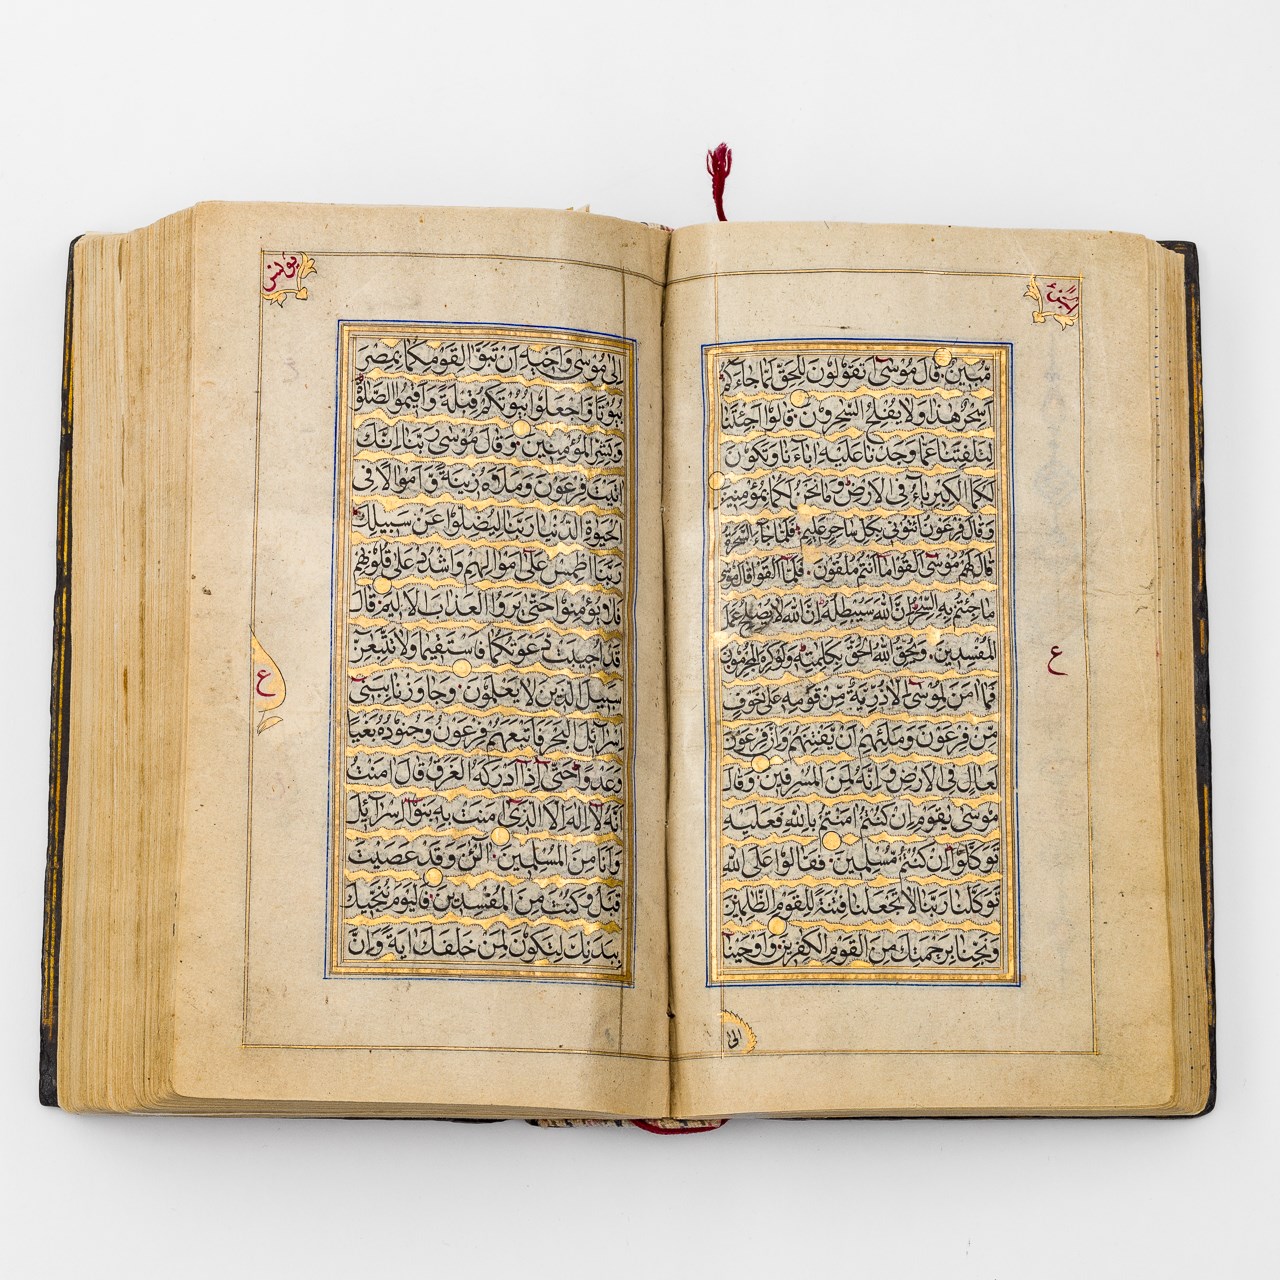 الجزء
مبين قال موسى اتقولون للحق لما جاءكم
اسحر هذا ولا يفلح السحرون قالوا اجئتنا
لتلفتنا عما وجدنا عليه اباءنا وتكون
لكما الكبرياء في الارض وما نحن لكما بمؤمنين
وقال فرعون ائتوني بكل ساحر عليم فلما جاء السحرة
قال لهم موسى القوا ما انتم ملقون فلما القوا قال موسى
ما جئتم به السحر ان الله سيبطله ان الله لا يصلح عمل
المفسدين ويحق الله الحق بكلمته ولو كره المجرمون
ع
فما امن لموسى الا ذرية من قومه على خوف
من فرعون وملئهم ان يفتنهم وان فرعون
لعال في الارض وانه لمن المسرفين وقال
موسى يقوم ان كنتم امنتم بالله فعليه
توكلوا ان كنتم مسلمين فقالوا على الله
توكلنا ربنا لا تجعلنا فتنة للقوم الظلمين
ونجنا برحمتك من القوم الكفرين واوحينا
الى
يونس
الى موسى واخيه ان تبوا لقومكما بمصر
بيوتا واجعلوا بيوتكم قبلة واقيموا الصلوة
وبشر المؤمنين وقال موسى ربنا انك
اتيت فرعون وملاه زينة واموالا في
الحيوة الدنيا ربنا ليضلوا عن سبيلك
ربنا اطمس على اموالهم واشدد على قلوبهم
فلا يؤمنوا حتى يروا العذاب الاليم قال
قد اجيبت دعوتكما فاستقيما ولا تتبعن
ع
سبيل الذين لا يعلمون وجاوزنا ببني
اسرائيل البحر فاتبعهم فرعون وجنوده بغيا
وعدوا حتى اذا ادركه الغرق قال امنت
انه لا اله الا الذي امنت به بنوا اسرائيل
وانا من المسلمين الن وقد عصيت
قبل وكنت من المفسدين فاليوم ننجيك
ببدنك لتكون لمن خلفك اية وان